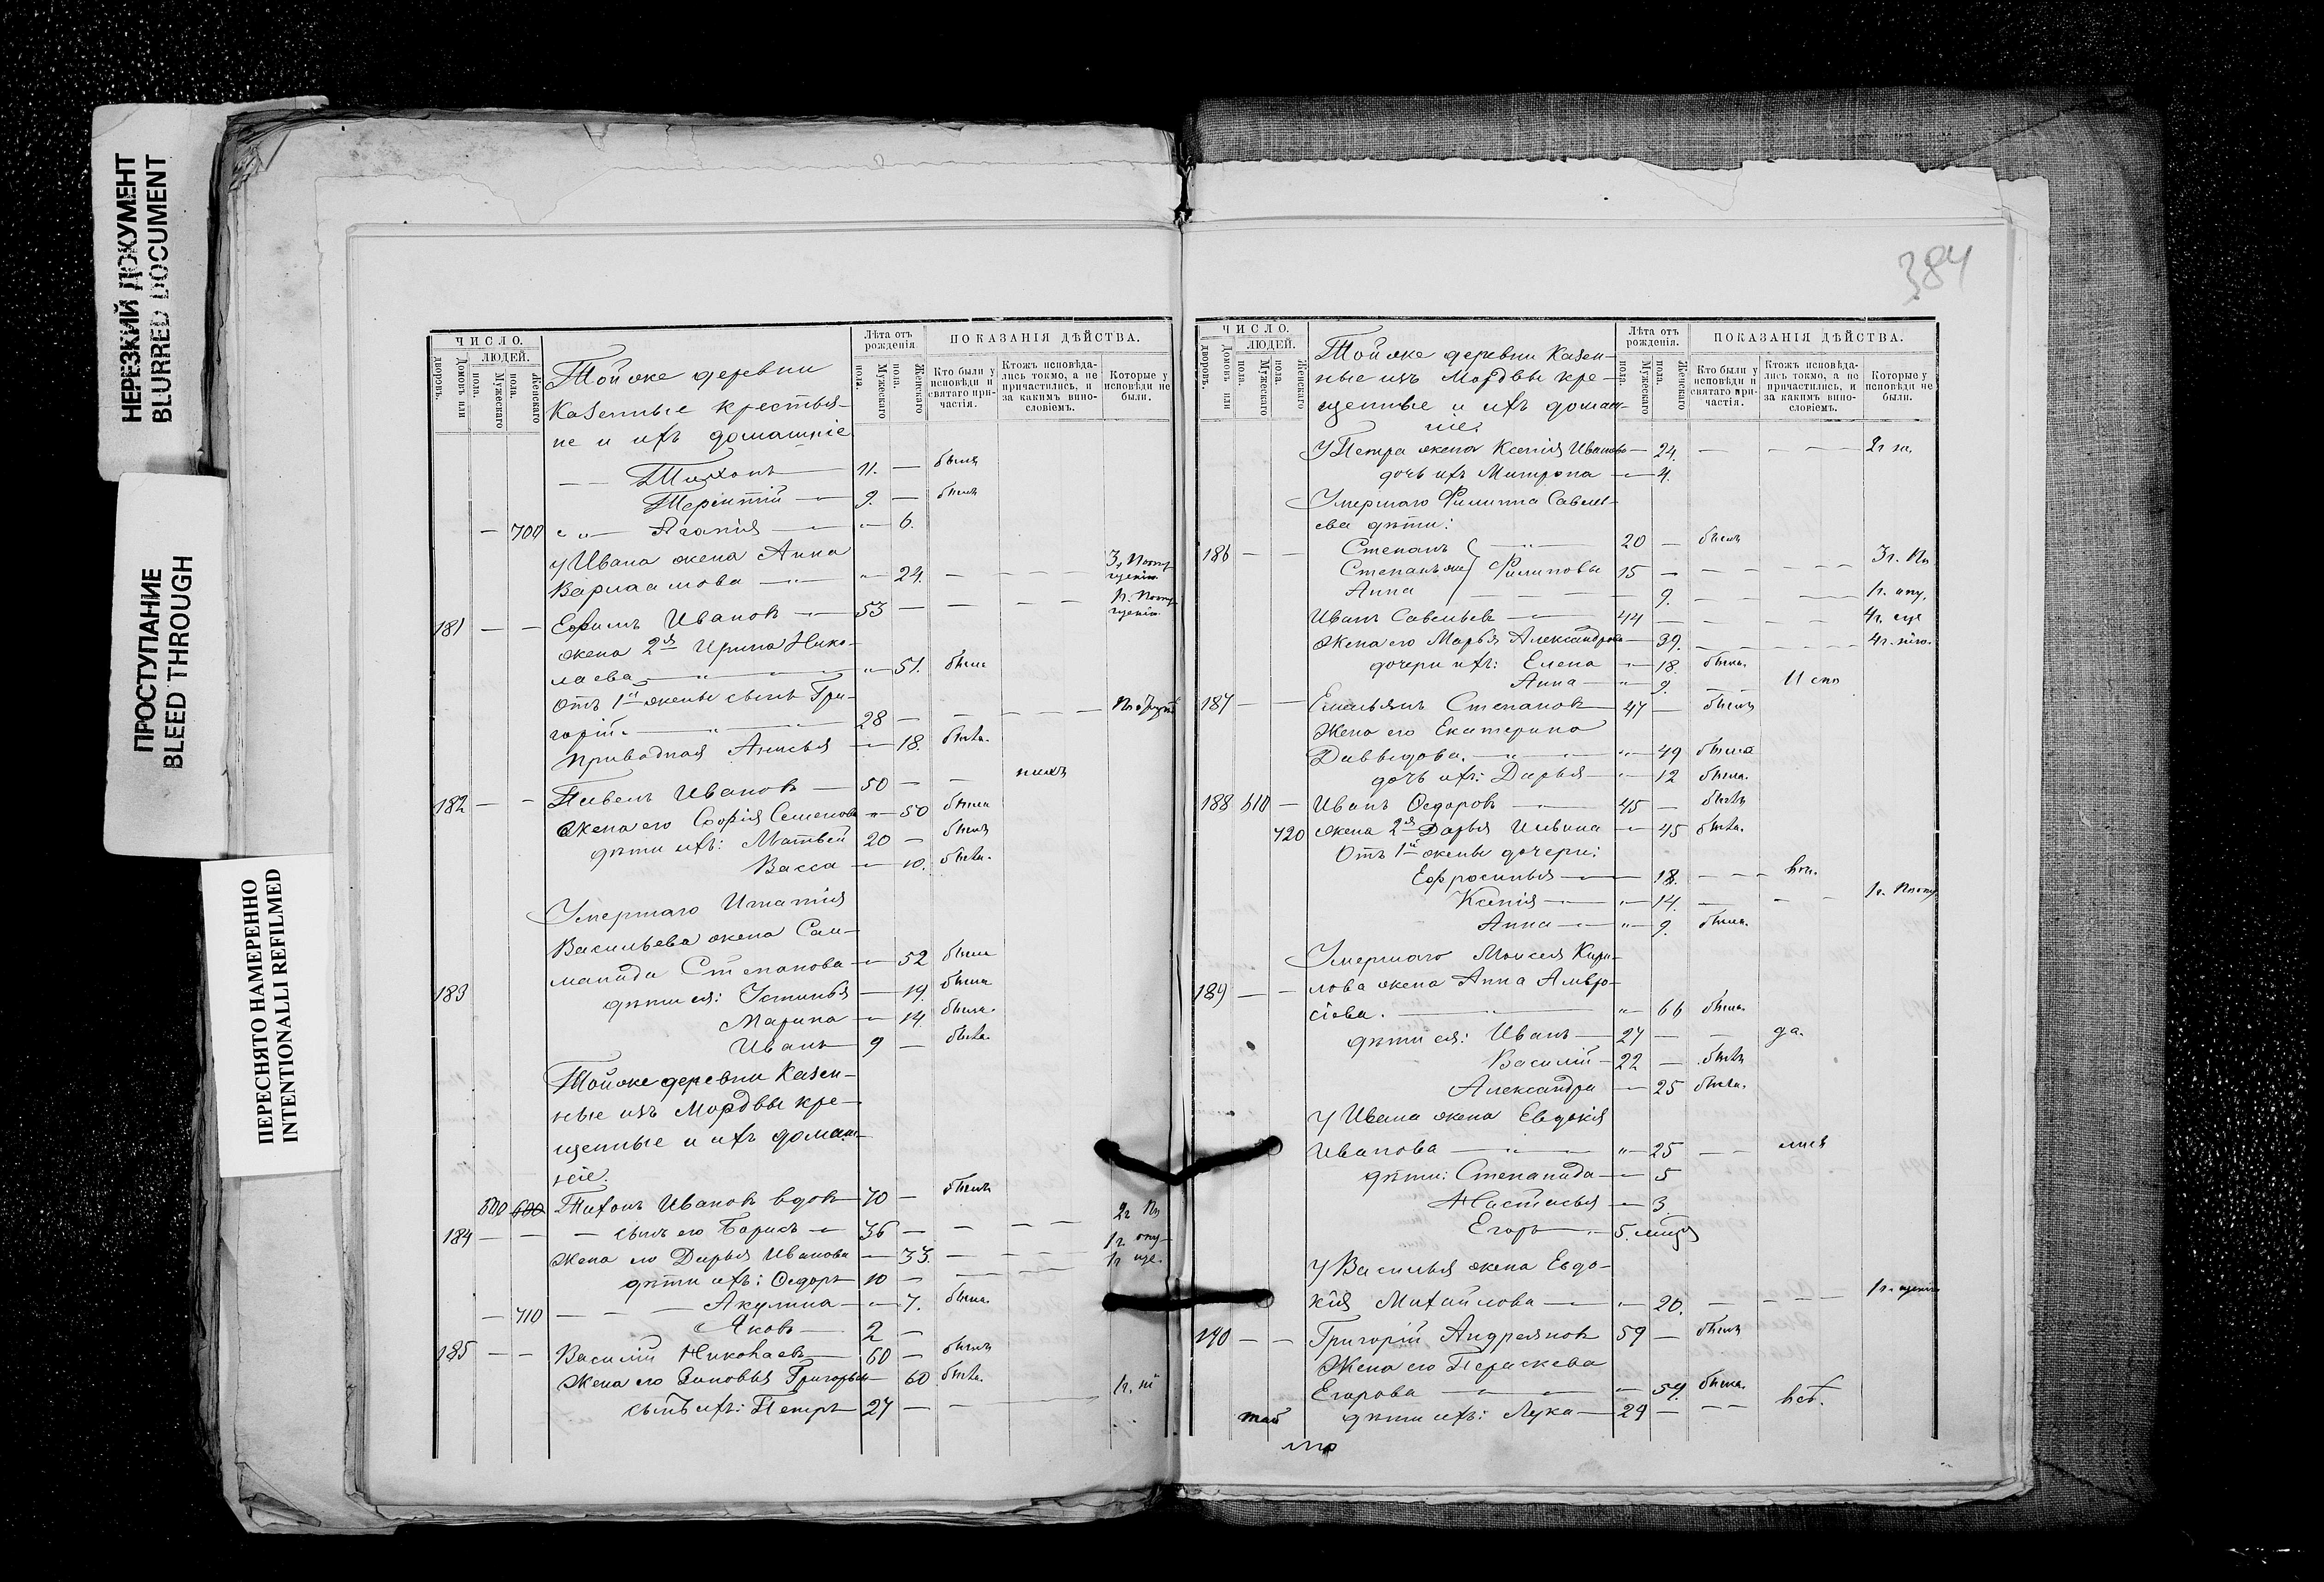 НЕРЕЗКИЙ ДОКУМЕНТ
BLURRED DOCUMENT
ПРОСТУПАНИЕ
BLEED THROUGH
ПЕРЕСНЯТО НАМЕРЕННО
INTENTIONALLI REFILMED
ЧИСЛО.
ЛЮДЕЙ.
Домовъ или дворовъ.
Мужескаго пола.
Женскаго пола.
Лѣта отъ рожденія
Мужескаго пола.
Женскаго пола.
ПОКАЗАНІЯ ДѢЙСТВА.
Кто были у исповѣди и святаго причастія.
Ктожъ исповѣдались токмо, а не причастились, и за какимъ винословіемъ.
Которые у исповѣди не были.
Той же деревни
казенные крестья-
не и ихъ домашніе
Тихонъ 11. — былъ
Терентій — 9. — былъ
— 700 Агапія — „ 6.
У Ивана жена Анна
Варлаамова — „ 24. — —
181 — — Ефимъ Ивановъ — 53 — — —
жена 2я Ирина Нико-
лаева „ 51. была
Отъ 1й жены сынъ Гри-
горій 28 — —
Приводная Анисья — 18. была.
182 — — Павелъ Ивановъ — 50 — —
Жена его Софія Семенова „ 50 была
дѣти ихъ: Матвей 20 — былъ
Васса — 10. была.
Умершаго Игнатія
Васильева жена Сам-
манида Степанова — 52 была
183 дѣти ея: Устинья — 19. была
Марина — 14. была.
Иванъ 9 —
Той же деревни казен-
ные изъ Мордвы кре-
щенные и ихъ домаш-
ніе.
600 Тихонъ Ивановъ вдовъ 70 — былъ
184 — — сынъ его Борисъ — 36 — —
Жена его Дарья Иванова — 33. —
дѣти ихъ: Ѳедоръ 10 —
— 710 Акулина — „ 7. была.
Яковъ 2 —
185 — — Василій Николаевъ 60 — былъ
Жена его Зиновья Григорьева — 60 была.
сынъ ихъ: Петръ 27 — —
384
ЧИСЛО.
ЛЮДЕЙ.
Домовъ или дворовъ.
Мужескаго пола.
Женскаго пола.
Лѣта отъ рожденія.
Мужескаго пола.
Женскаго пола.
ПОКАЗАНІЯ ДѢЙСТВА.
Кто были у исповѣди и святаго причастія.
Ктожъ исповѣдались токмо, а не причастились, и за какимъ винословіемъ.
Которые у исповѣди не были.
Той же деревни казен-
ные изъ Мордвы кре-
щенные и ихъ домаш-
ніе.
У Петра жена Ксенія Иванова — 24. —
дочь ихъ Митрона — 4.
Умершаго Филиппа Савель-
ева дѣти:
186 — — Степанъ 20 — былъ
Степанъ же Филиповы 15 —
Анна 9. —
Иванъ Савельевъ — 44 —
Жена его Марья Александрова — 39. —
дочери ихъ: Елена — „ 18. была.
Анна — „ 9. —
187 — — Емельянъ Степановъ 47 — былъ
Жена его Екатерина
Давыдова. „ 49 была
дочь ихъ: Дарья — „ 12 была.
188 610 — Иванъ Ѳедоровъ 45 — былъ
720 Жена 2я Дарья Ильина — 45 была.
Отъ 1й жены дочери:
Ефросинья — 18. — —
Ксенія — „ 14. —
Анна — „ 9. была.
Умершаго Моисея Кири-
189 — — лова жена Анна Амвро-
сіева. „ 66 была.
дѣти ея: Иванъ — 27 — —
Василій — 22 — былъ
Александра — 25 была.
У Ивана жена Евдокія
Иванова „ 25 — —
дѣти: Степанида — 5
Настасья — 3.
Егоръ 5. мцъ
У Василья жена Евдо-
кія Михайлова — „ 20. —
190 — — Григорій Андреяновъ 59 — былъ
Жена его Параскева
Егорова — 59. была.
дѣти ихъ: Лука — 29 — —